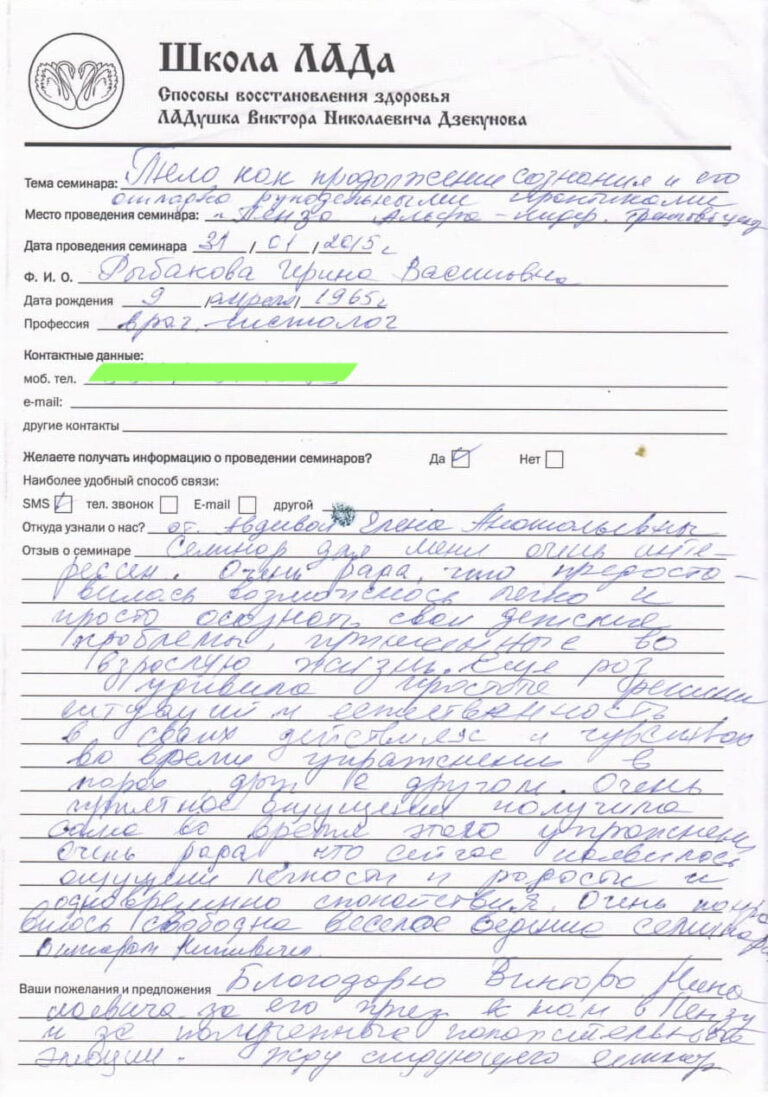 Школа ЛАДа
Способы восстановления здоровья
ЛАДушка Виктора Николаевича Дзекунова
Тема семинара: Тело как продолжение сознания и его
отладка рукодельными практиками
Место проведения семинара: г. Пенза Альфа-Лидер. тренинговый
Дата проведения семинара 31 / 01 / 2015 г
Ф. И. О. Рыбакова Ирина Васильевна
Дата рождения 9 / апреля / 1965 г
Профессия врач гистолог
Контактные данные:
моб. тел.
e-mail:
другие контакты
Желаете получать информацию о проведении семинаров? Да Нет
Наиболее удобный способ связи:
SMS тел. звонок E-mail другой
Откуда узнали о нас? от Авдеевой Елена Анатольевны
Отзыв о семинаре Семинар для меня очень инте-
ресен. Очень рада, что предоста-
вилась возможность легко и
просто осознать свои детские
проблемы, пришедшие во
взрослую жизнь. Еще раз
удивила простые решения
ситуаций и естественность
в своих действиях и чувствах
во время упражнений в
парах друг с другом. Очень
приятное ощущения получила
сама во время этого упражнения
Очень рада, что сейчас появилось
ощущение легкости и радости и
одновременно спокойствия. Очень понра
вилось свободна веселое ведение семинара
Виктором
Ваши пожелания и предложения Благодарю Виктора Нико
лаевича за его приезд к нам в Пензу
и за полученные положительные
эмоции - Жду следующего семинар